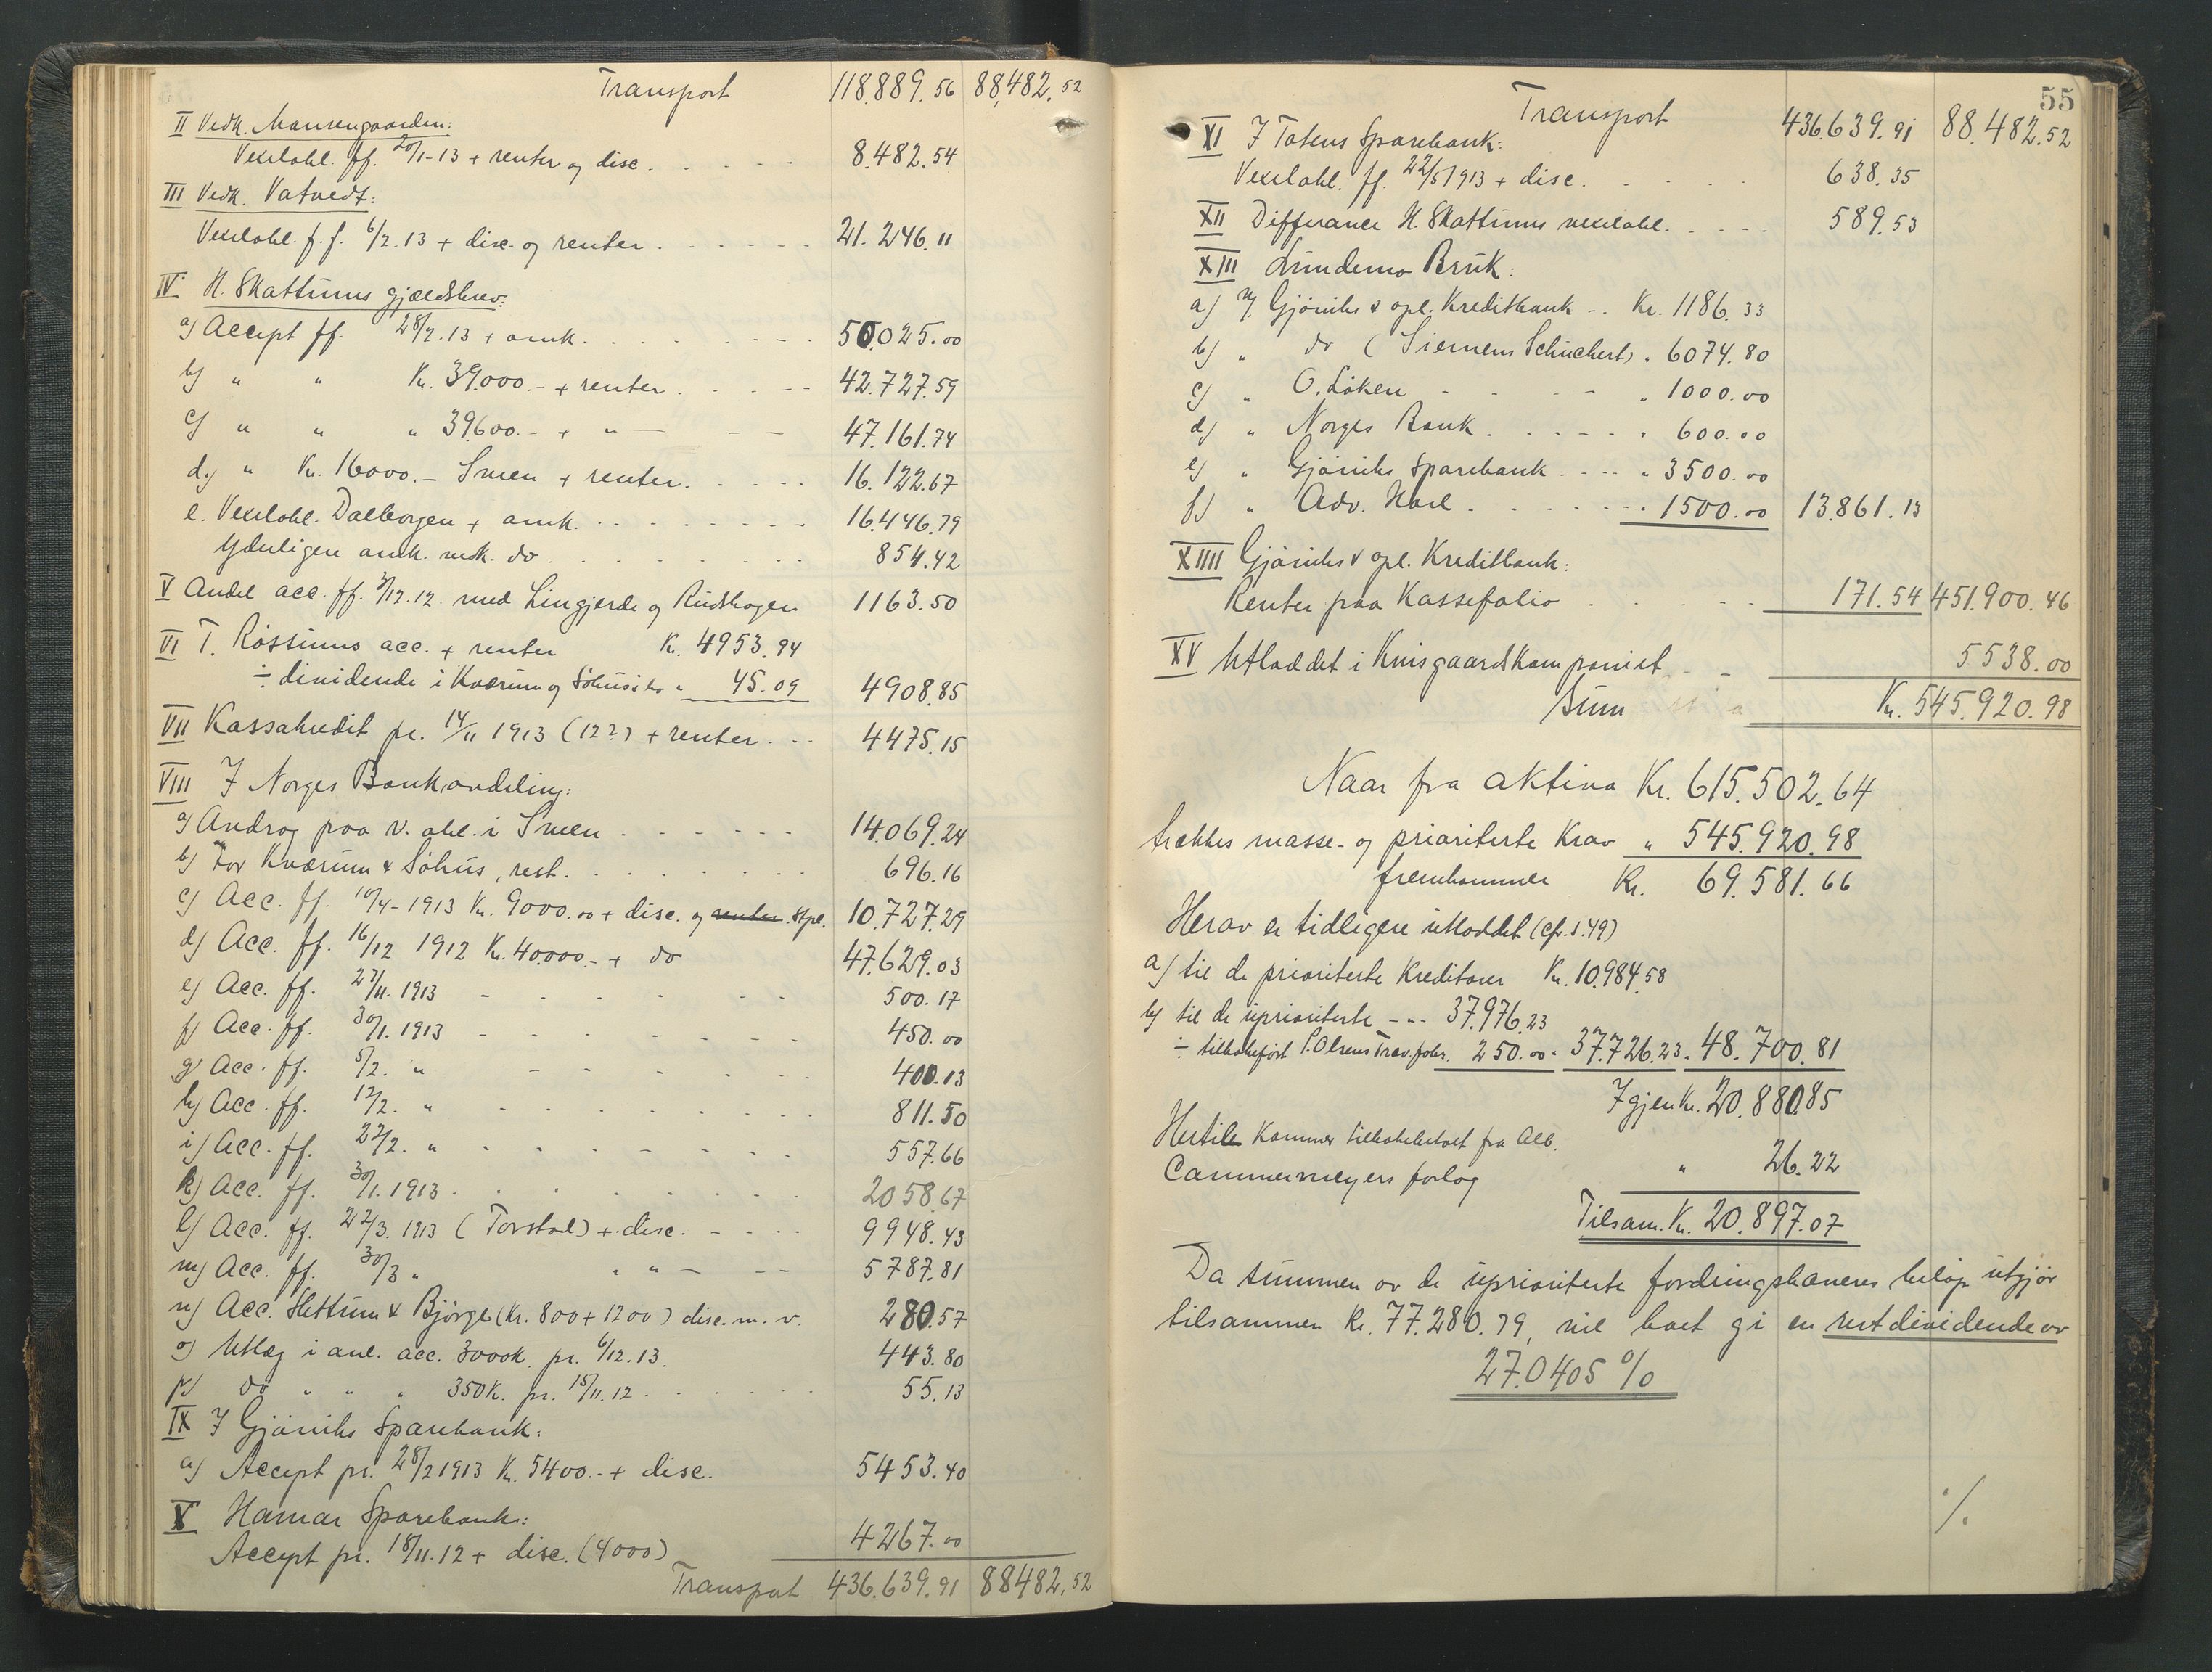 Transport 118.889.56 88,482.52
II Vedk. Mansengaarden:
Vexelobl. ff. 20/1-13 + renter og disc. 8.482.54
III Vedk. Vatvedt:
Vexelobl. f.f. 6/2.13 + disc. og renter 21.246.11
IV H. Skattums gjældsbrev:
a) Accept ff. 28/2.13 + omk. 50.025.00
b) " " Kr. 39.000.- + renter 42.727.59
c) " " " 39.600.- + " 47.161.74
d) " Kr. 16000.- Smen + renter. 16.122.67
e. Vexelobl. Dalborgen + omk. 16.446.79
Yderligere omk. vedk. do 854.42
V Andel acc. ff. 3/12.12. med Lingjerde og Rudshagen 1163.50
VI T. Røssums acc. + renter Kr. 4953.94
÷ dividende i Kværum og Søhus's bo " 45.09 4908.85
VII Kassakredit pr. 14/11 1913 (12?) + renter 4475.15
VIII I Norges Bankavdeling:
a) Androg paa v. obl. i Smen 14.069.24
b) For Kværum & Søhus, rest. 696.16
c) Acc. ff. 10/4-1913 Kr. 9000.00 + disc. og renter. stpl. 10.727.29
d) Acc. ff. 16/12 1912 Kr. 40.000.- + do 47.629.03
e) Acc. ff. 27/11. 1913 500.17
f) Acc. ff. 30/1. 1913 450.00
g) Acc. ff. 5/2. " 400.13
h) Acc. ff. 12/2. " 811.50
i) Acc. ff. 22/2. " 557.66
k) Acc. ff. 30/1. 1913 2058.67
l) Acc. ff. 22/3. 1913 (Torstad) + disc. 9948.43
m) Acc. ff. 30/3 " " " 5787.81
n) Acc. Slettum & Bjørge (Kr. 800 + 1200) disc. m. v. 280.57
o) Utlæg i anl. acc. 3000K. pr. 6/12.13. 443.80
p) do " " " 350K. pr. 15/11.12 55.13
IX I Gjøviks Sparebank:
a) Accept pr. 28/2 1913 Kr. 5400.- + disc. 5453.40
X Hamar Sparebank:
Accept pr. 18/11.12 + disc. (4000) 4267.00
Transport 436.639.91 88482.52
55
Transport 436.639.91 88.482.52
XI I Totens Sparebank:
Vexelobl. ff. 22/5 1913 + disc. 638.35
XII Differance H. Skattums vexelobl. 589.53
XIII Lundemo Bruk:
a) Gjøviks & opl. Kreditbank Kr. 1186.33
b) " do (Siemens Schuchert) " 6074.80
c) " O. Løken " 1000.00
d) " Norges Bank " 600.00
e) " Gjøviks Sparebank " 3500.00
f) " Adv. Hoel " 1500.00 13.861.13
XIIII Gjøviks & opl. Kreditbank:
Renter paa Kassefolio 171.54 451.900.46
XV Utloddet i Krusgaardskompaniet 5538.00
Sum Kr. 545.920.98
Naar fra aktiva Kr. 615.502.64
trækkes masse- og prioriterte Krav " 545.920.98
fremkommer Kr. 69.581.66
Herav er tidligere utloddet (cfr. s. 49)
a) til de prioriterte Kreditorer Kr. 10.984,58
b) til de uprioriterte -"- 37.976.23
÷ tilbakeført P. Olsens Træv.fabr. 250.00 " 37.726.23 " 48.700.81
Igjen Kr. 20.880.85
Hertil kommer tilbakebetalt fra Alb.
Cammermeyers forlag " 26.22
Tilsam. Kr. 20.897.07
Da summen av de uprioriterte fordringshaveres beløp utgjør
tilsammen Kr. 77.280.79, vil boet gi en restdividende av
27.0405 %
./.